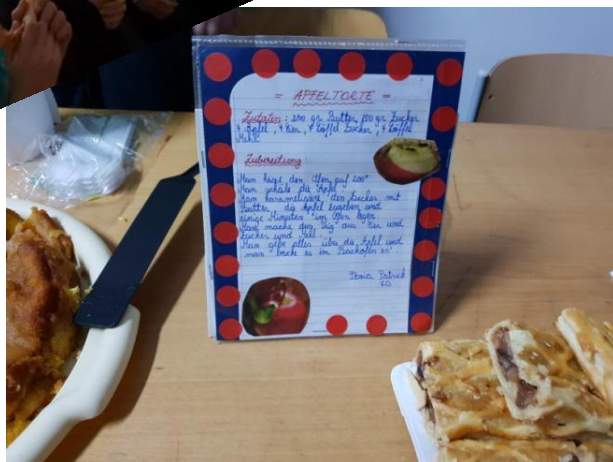 = APFELTORTE =
Zutaten: 200 gr. Butter, 150 gr. Zucker
4 Äpfel, 4 Eier, 4 Löffel Zucker, 4 Löffel
Mehl
Zubereitung:
Man heize den Ofen auf 200°
Man schäle die Äpfel
Man karamelisiere den Zucker mit
Butter, die Äpfel zugeben und
einige Minuten im Ofen legen
Man mache den Teig aus Eier und
Zucker und Mehl
Man gebe alles über die Äpfel und
man backe es im Backofen
Patrick